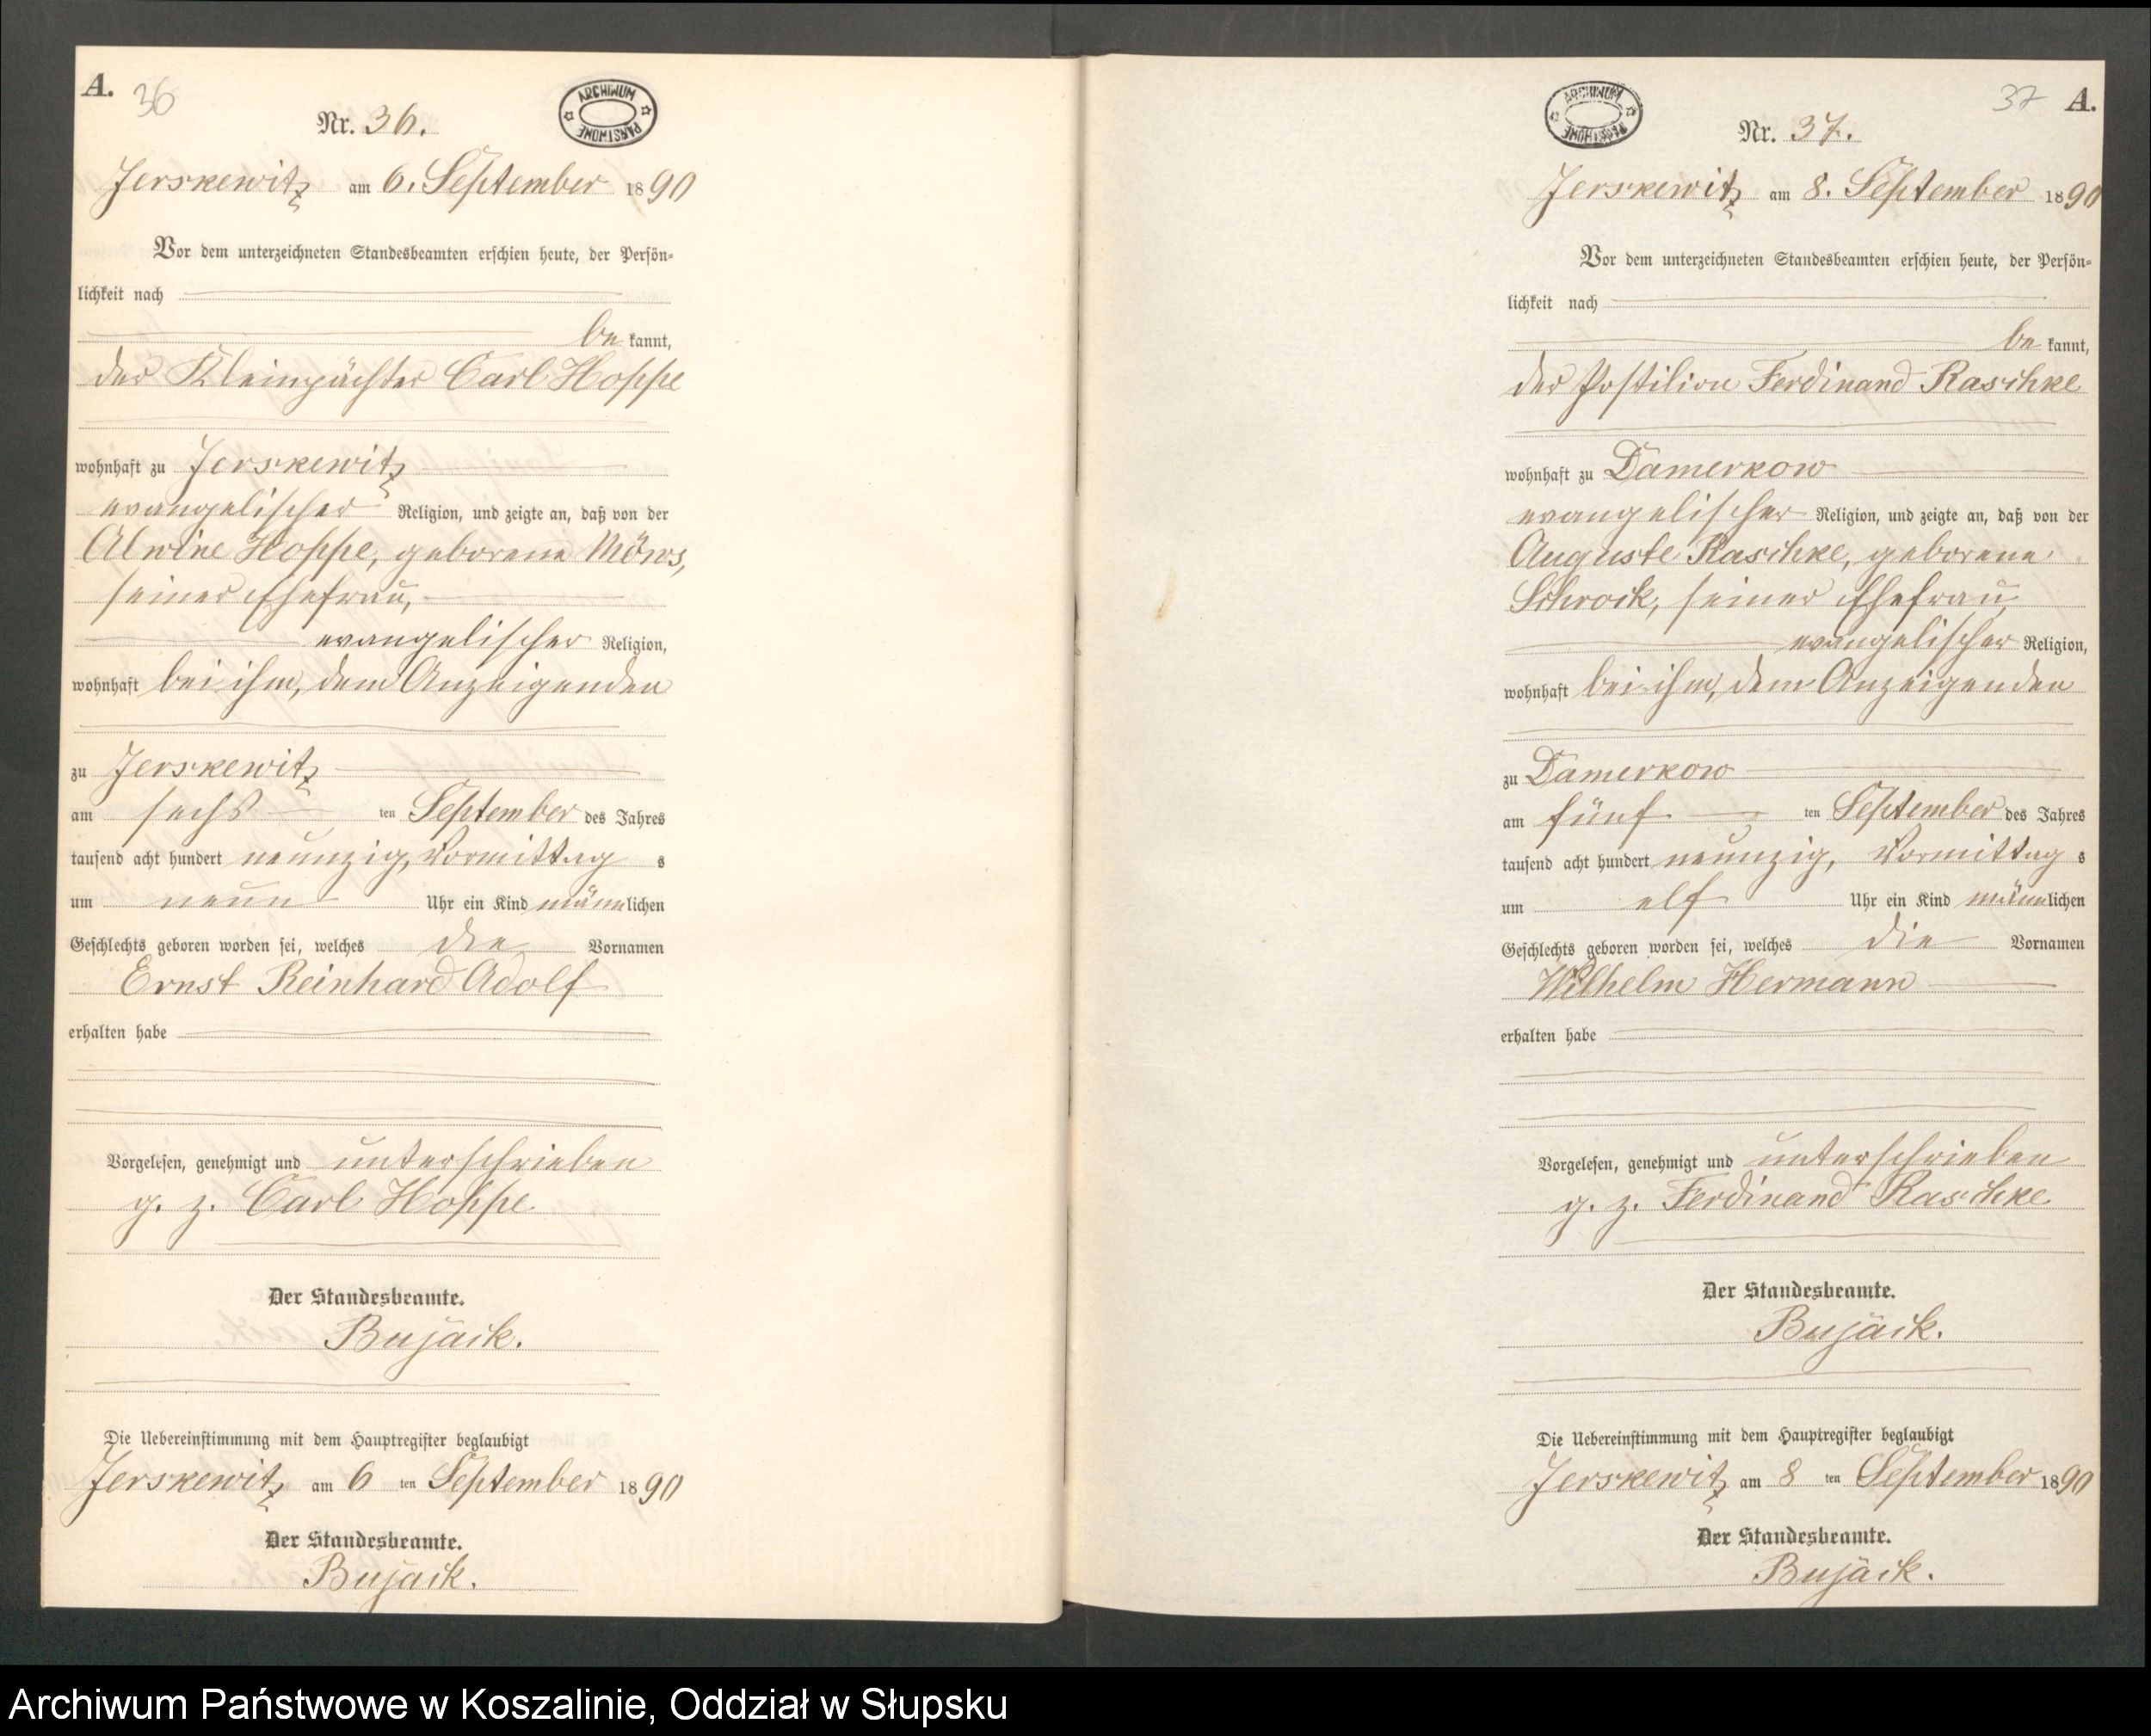 A. 36
ARCHIWUM PAŃSTWOWE
Nr. 36.
Jerskewitz am 6. September 1890
Vor dem unterzeichneten Standesbeamten erschien heute, der Persön-
lichkeit nach
be kannt,
der Kleinpächter Carl Hoppe
wohnhaft zu Jerskewitz
evangelischer Religion, und zeigte an, daß von der
Alwine Hoppe, geborene Möws,
seiner Ehefrau,
evangelischer Religion,
wohnhaft bei ihm, dem Anzeigenden
zu Jerskewitz
am sechs ten September des Jahres
tausend acht hundert neunzig, Vormittag s
um neun Uhr ein Kind männlichen
Geschlechts geboren worden sei, welches die Vornamen
Ernst Reinhard Adolf
erhalten habe
Vorgelesen, genehmigt und unterschrieben
g. z. Carl Hoppe
Der Standesbeamte.
Bujack.
Die Uebereinstimmung mit dem Hauptregister beglaubigt
Jerskewitz am 6 ten September 1890
Der Standesbeamte.
Bujack.
37 A.
ARCHIWUM PAŃSTWOWE
Nr. 37.
Jerskewitz am 8. September 1890
Vor dem unterzeichneten Standesbeamten erschien heute, der Persön-
lichkeit nach
be kannt,
der Postilion Ferdinand Raschke
wohnhaft zu Damerkow
evangelischer Religion, und zeigte an, daß von der
Auguste Raschke, geborene
Schrock, seiner Ehefrau,
evangelischer Religion,
wohnhaft bei ihm, dem Anzeigenden
zu Damerkow
am fünf ten September des Jahres
tausend acht hundert neunzig, Vormittag s
um elf Uhr ein Kind männlichen
Geschlechts geboren worden sei, welches die Vornamen
Wilhelm Hermann
erhalten habe
Vorgelesen, genehmigt und unterschrieben
g. z. Ferdinand Raschke
Der Standesbeamte.
Bujack.
Die Uebereinstimmung mit dem Hauptregister beglaubigt
Jerskewitz am 8 ten September 1890
Der Standesbeamte.
Bujack.
Archiwum Państwowe w Koszalinie, Oddział w Słupsku